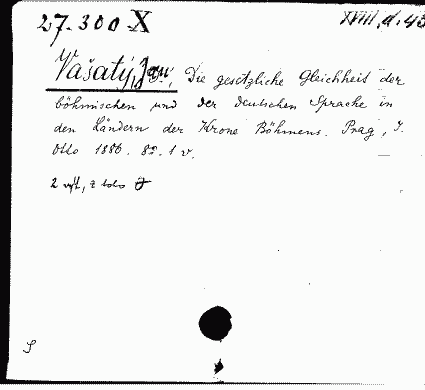 27.300-X
XVIII.d.43
Vašatý, Jan, Die gesetzliche Gleichheit der
böhmischen und der deutschen Sprache in
den Ländern der Krone Böhmens. Prag, J.
Otto 1886. 8º. 1 v.
2 výt, z toho
S